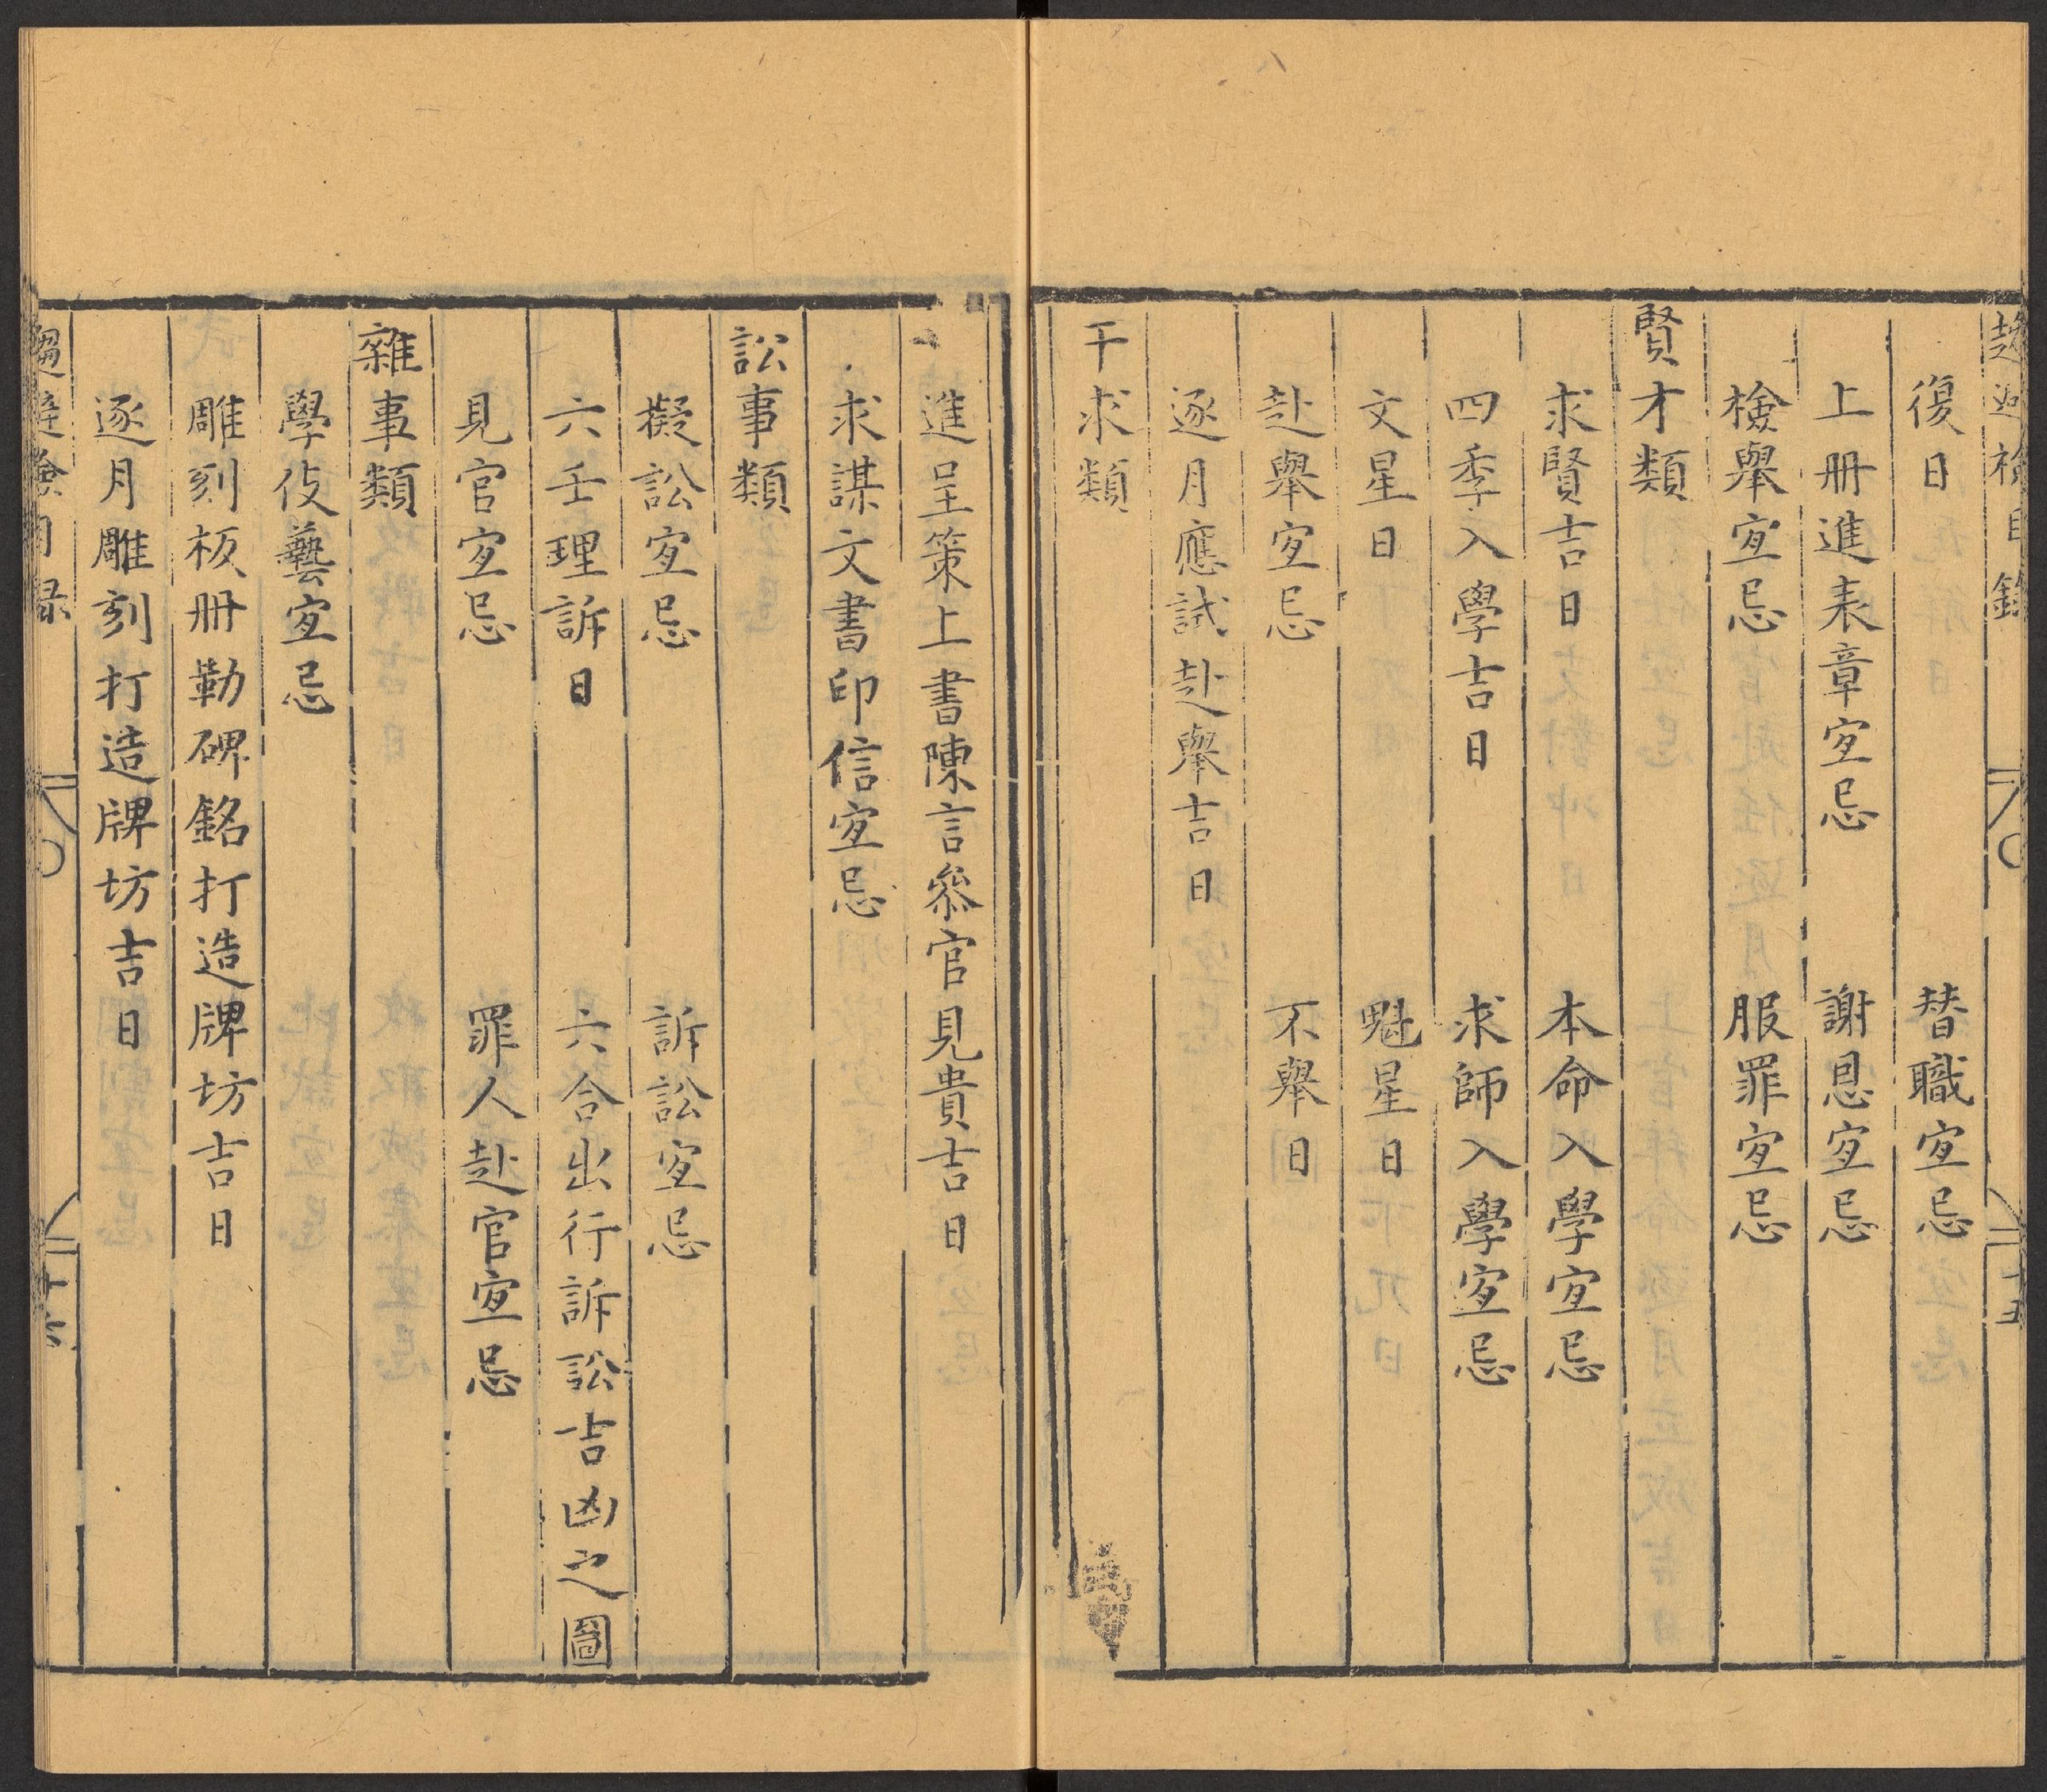 趨避檢目錄
十五
復日　替職宜忌
上冊進表章宜忌　謝恩宜忌
檢舉宜忌　服罪宜忌
賢才類
求賢吉日　本命入學宜忌
四季入學吉日　求師入學宜忌
文星日　魁星日
赴舉宜忌　不舉日
逐月應試赴舉吉日
干求類
進呈策上書陳言叅官見貴吉日
求謀文書印信宜忌
訟事類
擬訟宜忌　訴訟宜忌
六壬理訴日　六合出行訴訟吉凶之圖
見官宜忌　罪人赴官宜忌
雜事類
學伎藝宜忌
雕刻板冊勒碑銘打造牌坊吉日
逐月雕刻打造牌坊吉日
趨避檢目録
十六